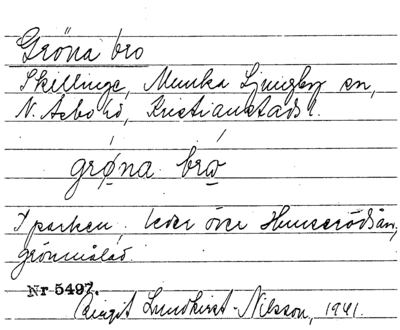 Gröna bro
Skillinge, Munka Ljungby sn,
N. Åsbo hd, Kristianstads l.
grø̣na brω
I parken, leder över Hunserödsån,
grönmålad.
Nr 5497.
Birgit Lundkvist-Nilsson, 1941.